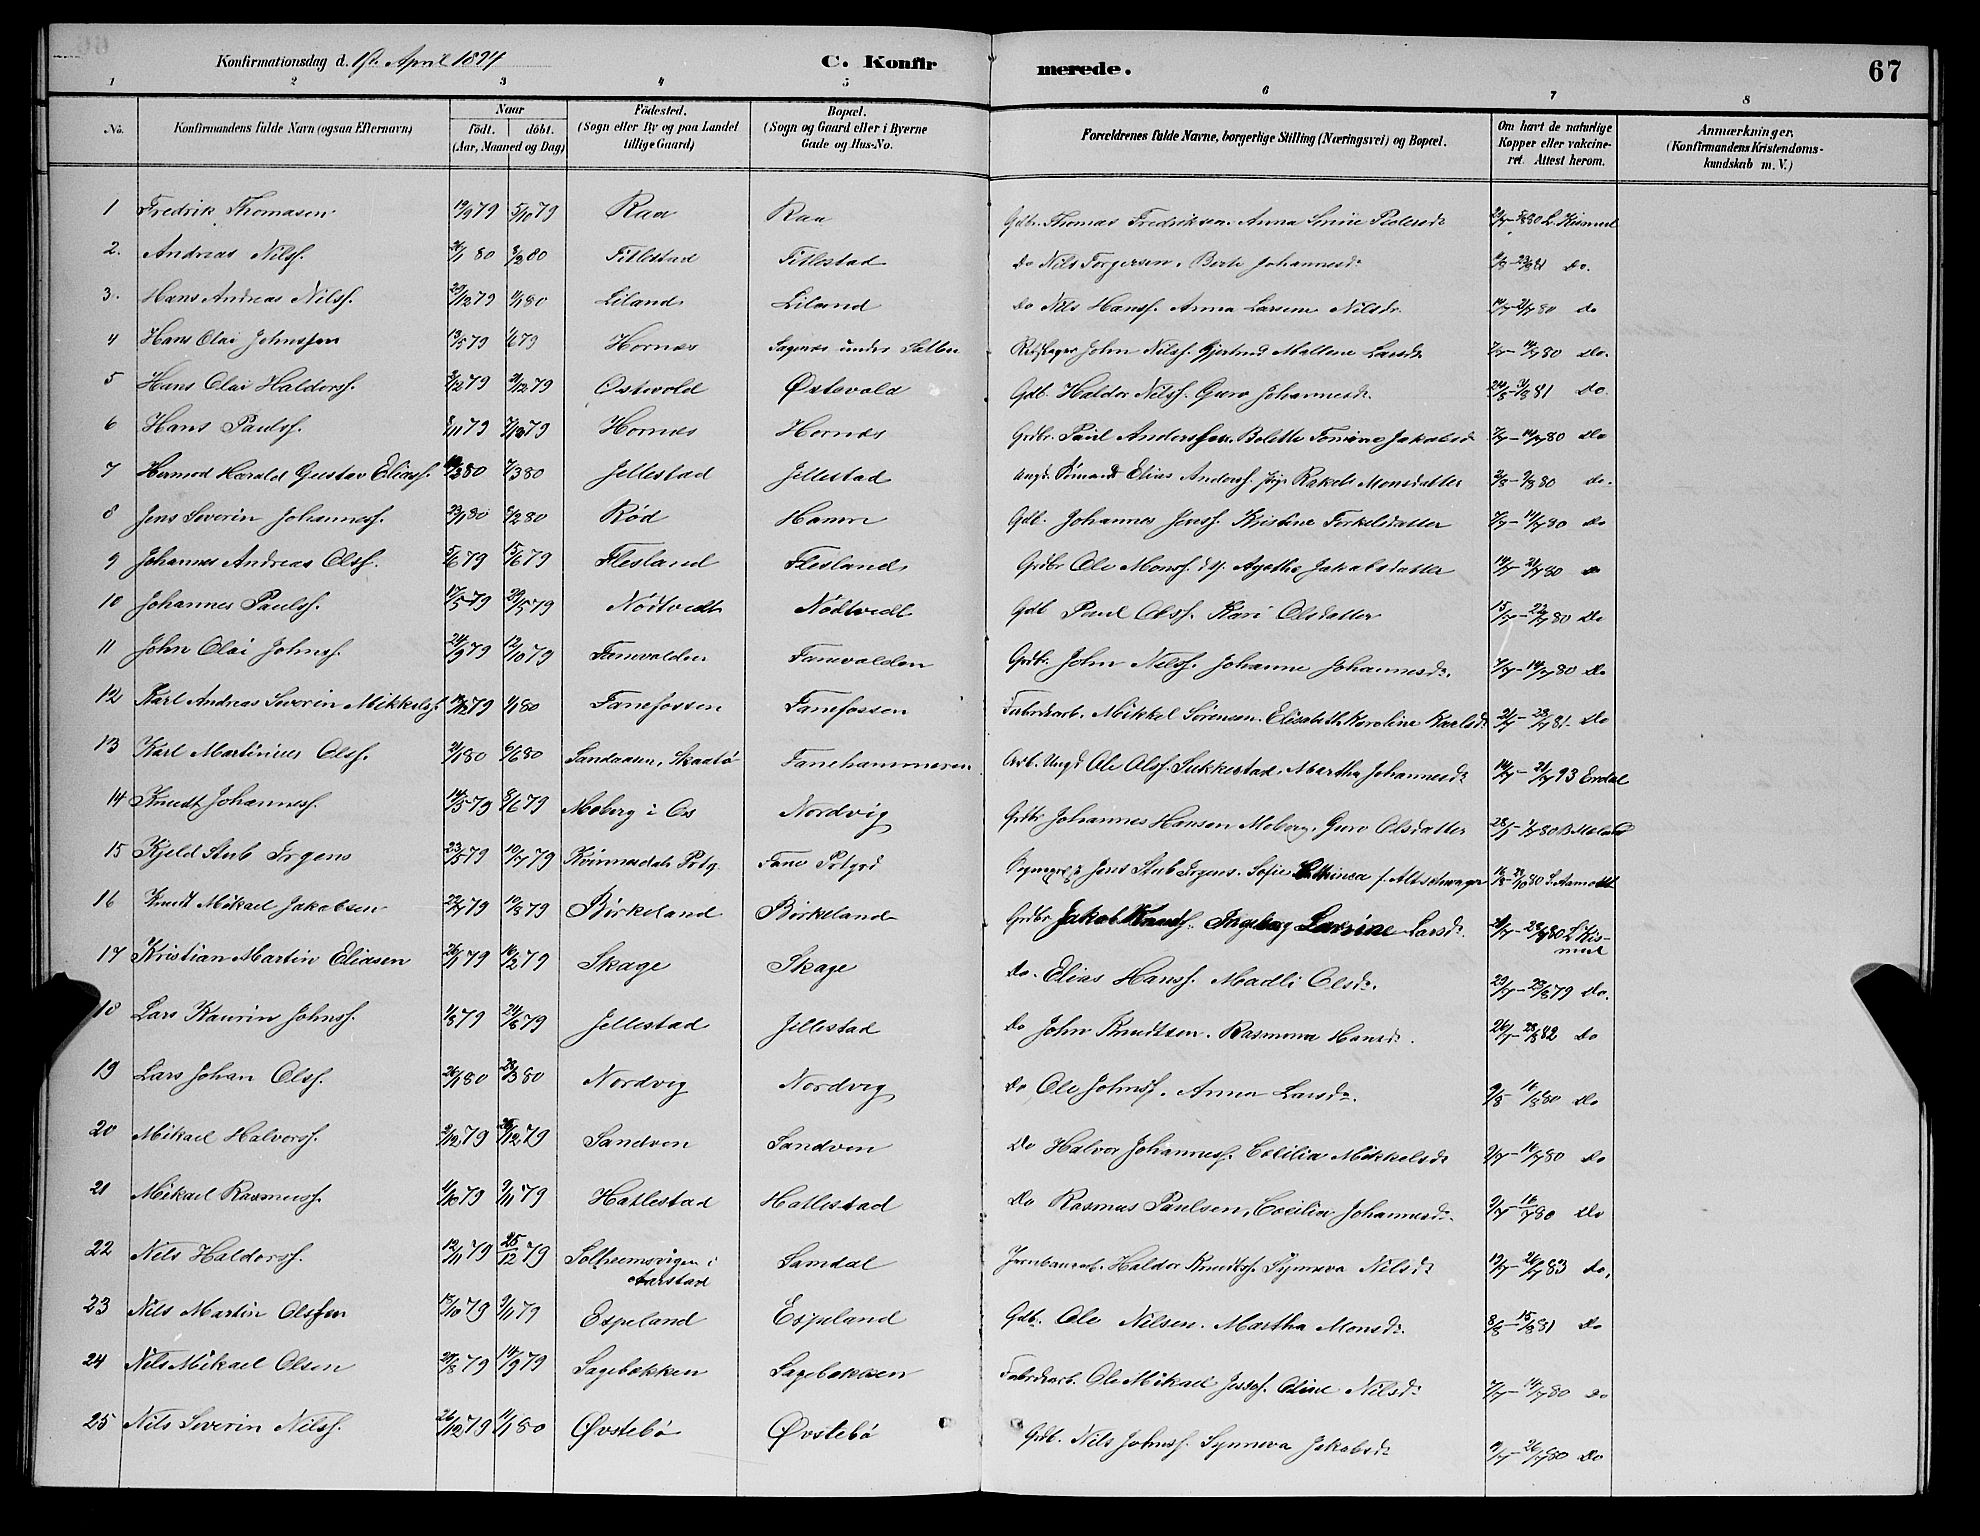 Konfirmationsdag d. April 1894
C. Konfir merede. 67
1 2 3 4 5 6 7 8
No. Konfirmandens fulde Navn (ogsaa Efternavn) Naar födt. döbt. (Aar, Maaned og Dag) Födested. (Sogn eller By og paa Landet tillige Gaard) Bopæl. (Sogn og Gaard eller i Byerne Gade og Hus-No. Forældrenes fulde Navne, borgerlige Stilling (Næringsvei) og Bopæl. Om havt de naturlige Kopper eller vakcineret. Attest herom. Anmærkninger. (Konfirmandens Kristendomskundskab m. V.)
1 Fredrik Thomasen 19/9 79 5/10 79 Raa Raa Gdb. Thomas Fredriksen. Anna
2. Andreas Nilsf. 80 8/2 80 Titlestad Titlestad Do Nils Torgersen. Berte Johannesd. Do.
3. Hans Andreas Nilsf. 29/12 79 80 Liland Liland Do Nils Hansf. Anna Larsine Nilsdr. 80 do
4 Hans Olai Johnssen 13/5 79 79 Hornæs under John Nilsf. Gjertrud Mallene Larsdr 7/7-14/7 80 Do.
5 Hans Olai Haldorsf. 79 21/12 79 Østevold Østevold Gdb. Haldor Nilsf. Guro Johannesdr. 81 Do.
6 Hans Paulsf. 8/11 79 79 Hornæs Hornæs Grdbr. Paul Anderssen. Bolette Jakobsd 7/7-14/7 80 Do
7 Hermod Harald Gustav Eliasf. 80 7/3 80 Jellestad Jellestad Ungk. Elias Andersf. Rakel Monsdatter 2/8-9/8 80 do.
8 Jens Severin Johannesf. 23/1 80 8/2 80 Rød Hamre Gdb. Johannes Jensf. Kristine Torkelsdatter 7/7-14/7 80 Do
9 Johannes Andreas Olsf. 5/6 79 15/6 79 Flesland Flesland Grdbr Ole Monsf. Agathe Jakobsdatter 14/7-21/7 80 do
10 Johannes Paulsf. 17/5 79 29/5 79 Nødtvedt Nødtvedt Gdb Paul Olsf. Kari Olsdatter 15/7-22/7 80 Do
11 John Olai Johnsf. 24/9 79 12/10 79 Fanevalden Fanevalden Grdbr. John Nilsf. Johanne Johannesdr. 7/7-14/7 80 Do
12 Karl Andreas Severin Mikkelsf. 79 80 Fanefossen Fanefossen Fabrikarb. Mikkel Sørensen. Elisabeth Karoline Karlsdr 81. Do
13 Karl Martinius Olsf. 80 6/6 80 Sandaasen, Skaatø Fanehammeren Arb. Ungd Ole Olsf. Sukkestad. Martha Johannesdr 14/7-21/7 93 Erdal
14 Knudt Johannesf. 14/5 79 8/6 79 Moberg i Os Nordvig Grdbr Johannes Hansen Moberg. Guro Olsdatter 80
15 Kjeld Stub Irgens 23/5 79 10/7 79 Kvinnesdals Prtg. Fane Prtgrd Jens Stub Irgens. Sofie f. 80
16 Knudt Mikael Jakobsen 79 10/8 79 Birkeland Birkeland Grdbr Jakob Knudsf. Ingeborg Larsine Larsdr. 80
17 Kristian Martin Eliasen 79 16/2 79 Skage Skage Do. Elias Hansf. Madli Olsdr. 79 Do.
18 Lars Kaurin Johnsf. 79 24/8 79 Jellestad Jellestad Do John Knudtsen. Rasmona Hansdr. 82 Do
19 Lars Johan Olsf. 26/1 80 28/3 80 Nordvig Nordvig Do Ole Johnsf. Anna Larsdr. 9/8 16/8 80 Do
20 Mikael Halvorsf. 2/12 79 26/12 79 Sandven Sandven Do Halvor Johannesf. Cecilia Mikkelsdr 9/7-16/7 80 Do
21 Mikael Rasmusf. 79 9/11 79 Hatlestad Hatlestad Do Rasmus Paulsen, Cecilia Johannesdr. 9/7-16/7 80 Do
22 Nils Haldorsf. 12/11 79 25/12 79 Solheimsvigen i Aarstad Samdal Jernbanearb. Haldor Knudtsf. Synneva Nilsdr 19/7-26/7 83 Do,
23 Nils Martin Olssen 79 9/11 79 Espeland Espeland Gdb. Ole Nilsen. Martha Monsdr. 8/8-15/8 81 Do
24 Nils Mikael Olsen 79 14/9 79 Sagebækken Sagebækken Fabrikarb. Ole Mikael Oline Nilsdr 7/7-14/7 80 Do
25 Nils Severin Nilsf. 26/12 79 80 Øvstebø Øvstebø Grdb. Nils Johnsf. Synneva Jakobsdr 80 Do